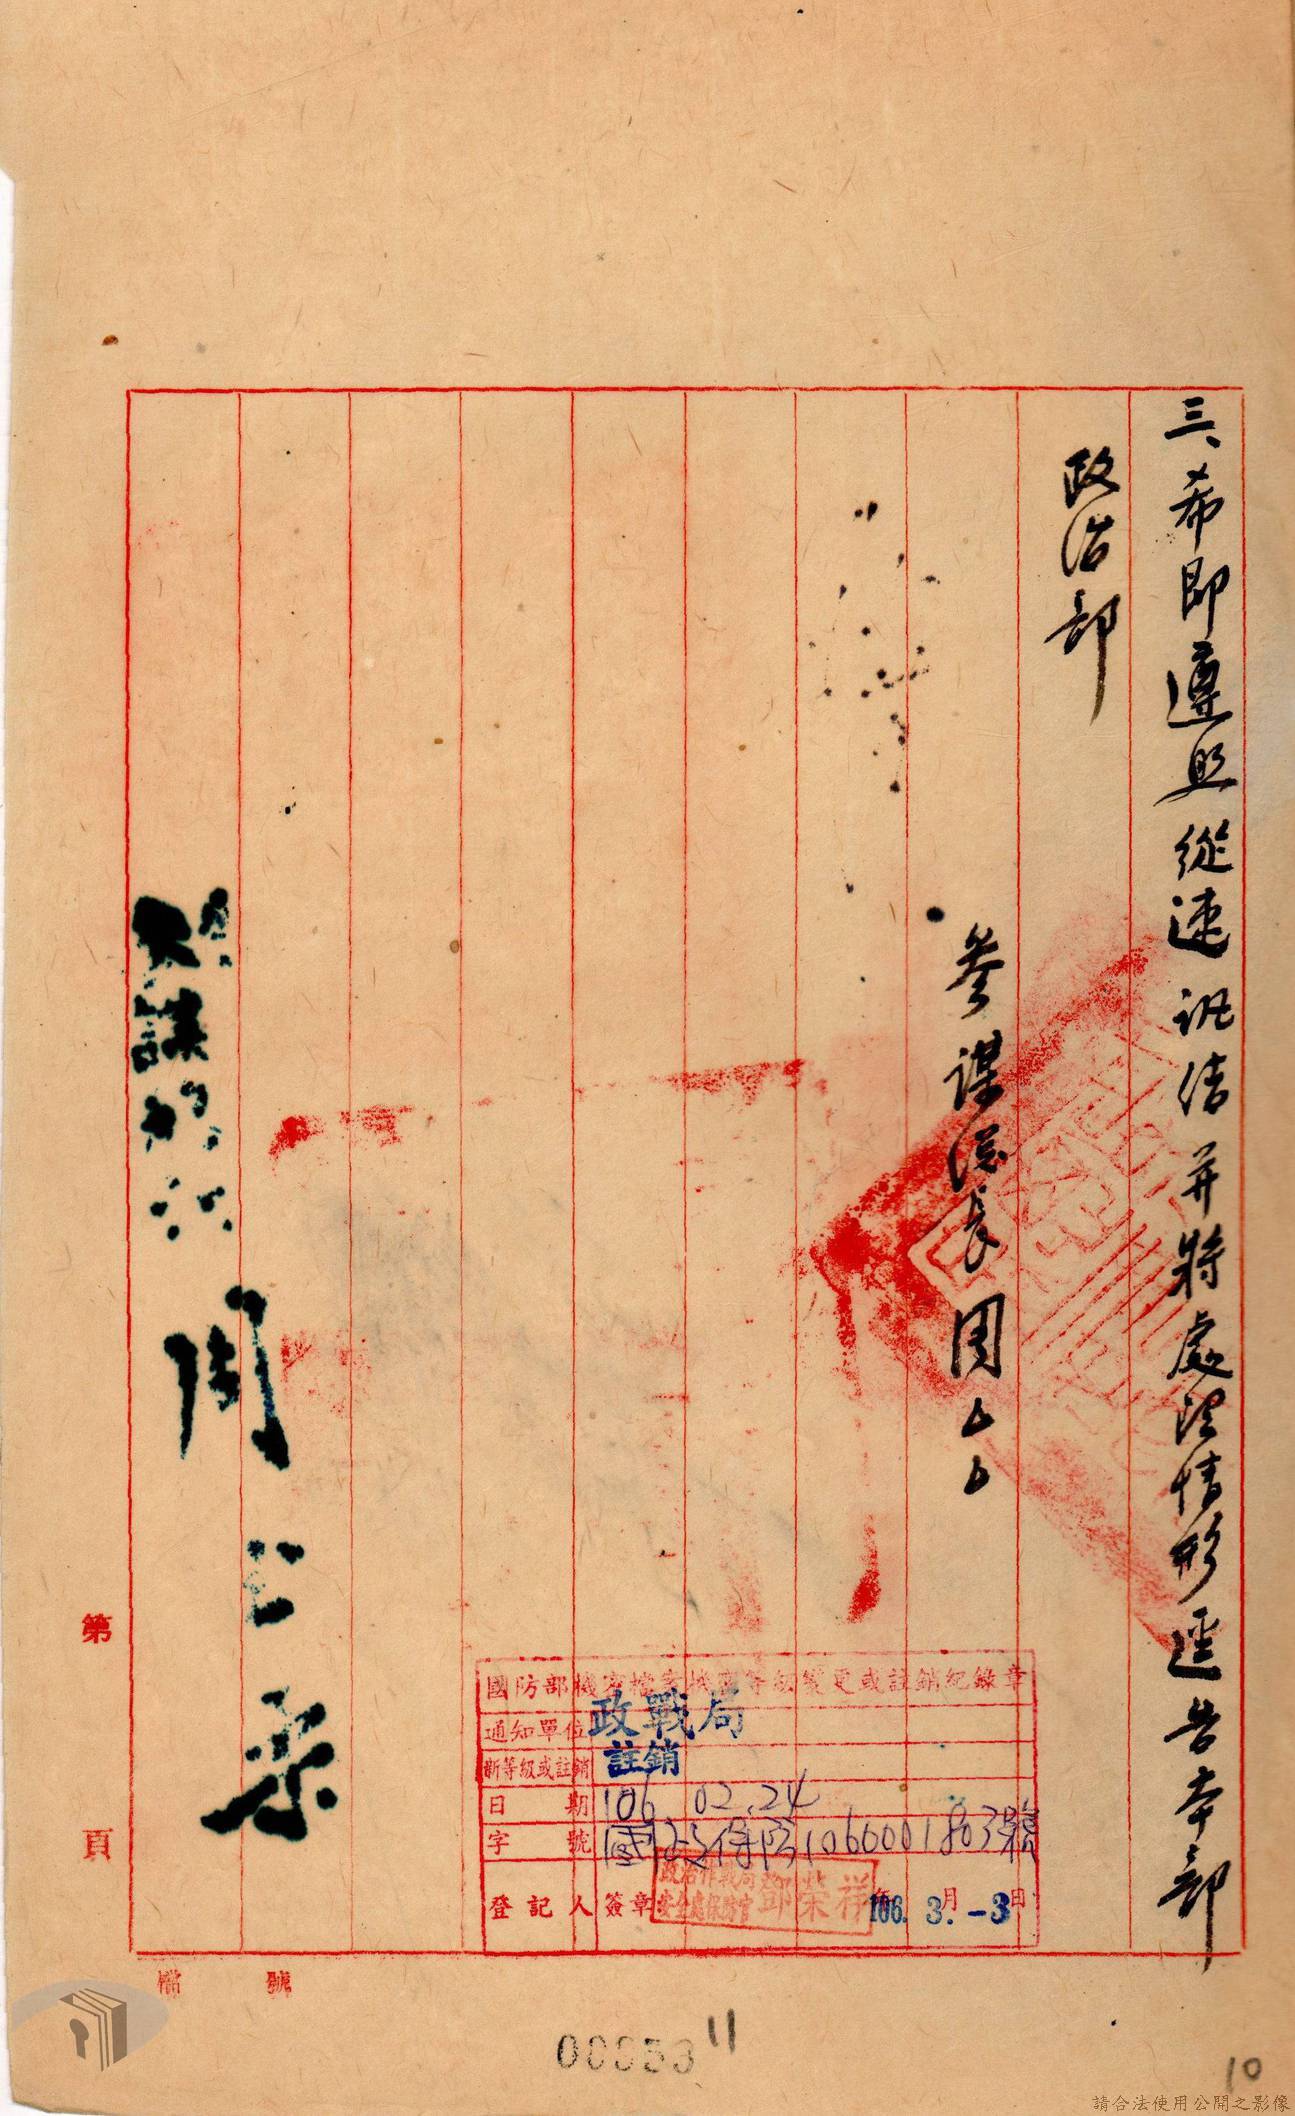 三、希即遵照從速訊結并將處理情形逕告本部
政治部
參謀總長周厶厶
周
國防部機密檔案機密等級變更或註銷紀錄章
通知單位 政戰局
新等級或註銷 註銷
日期 106.02.24
字號 國政保防1060001803號
登記人 簽章 政治作戰局安全處保防官 鄧榮祥 106.年3.月-3日
第 頁
檔 號
00053
11
10
請合法使用公開之影像